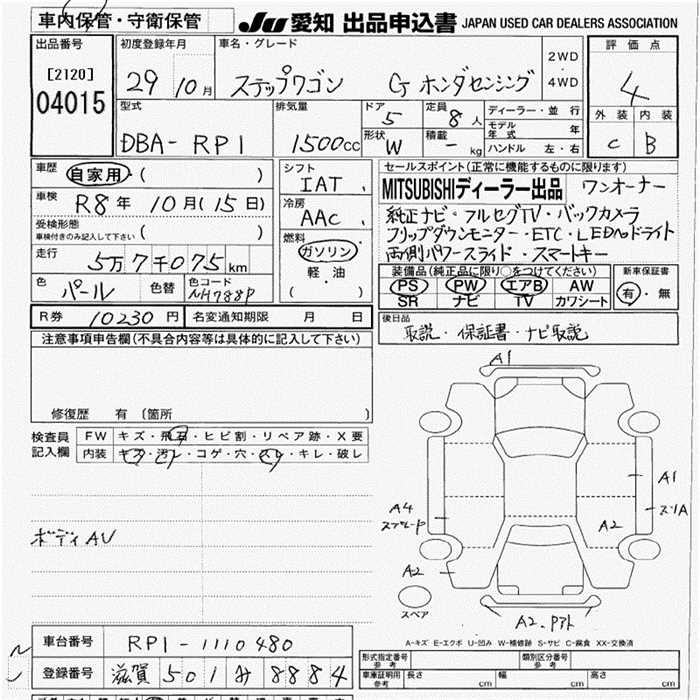 車内保管・守衛保管
JU 愛知 出品申込書 JAPAN USED CAR DEALERS ASSOCIATION
出品番号 初度登録年月 車名・グレード 2WD・4WD 評価点
[2120] 29 10月 ステップワゴン G ホンダセンシング 4
04015
型式 排気量 ドア 5 定員 8人 ディーラー・並行 外装 内装
モデル年式 年
DBA-RP1 1500cc 形状 W 積載 - kg ハンドル 左・右 C B
車歴 自家用・( ) シフト IAT セールスポイント(正常に機能するものに限ります)
車検 R8年 10月(15日) 冷房 AAC MITSUBISHIディーラー出品 ワンオーナー
純正ナビ・フルセグTV・バックカメラ
受検形態 車検付きのみ記入して下さい ( ) 燃料 フリップダウンモニター・ETC・LEDヘッドライト
走行 5万7千075km ガソリン 両側パワースライド・スマートキー
軽油 装備品(純正品に限り○をつけてください) 新車保証書
色 パール 色替 色コード NH788P ( ) PS PW エアB AW 有・無
SR ナビ TV カワシート
R券 10230円 名変通知期限 月 日 後日品
注意事項申告欄(不具合内容等は具体的に記入して下さい) 取説・保証書・ナビ取説
A1
修復歴 有 (箇所
検査員記入欄 FW キズ・飛石・ヒビ割・リペア跡・X要
内装 キズ・汚レ・コゲ・穴・スレ・キレ・破レ
A1
A4 スリA
A2
ボディAU
A2
スペア
A2
車台番号 RP1-1110480
A-キズ E-エクボ U-凹み W-補修跡 S-サビ C-腐食 XX-交換済
登録番号 滋賀 501 み 8884
形式指定番号 参考 類別区分番号 参考
車庫証明用 参考 長さ cm 幅 cm 高さ cm